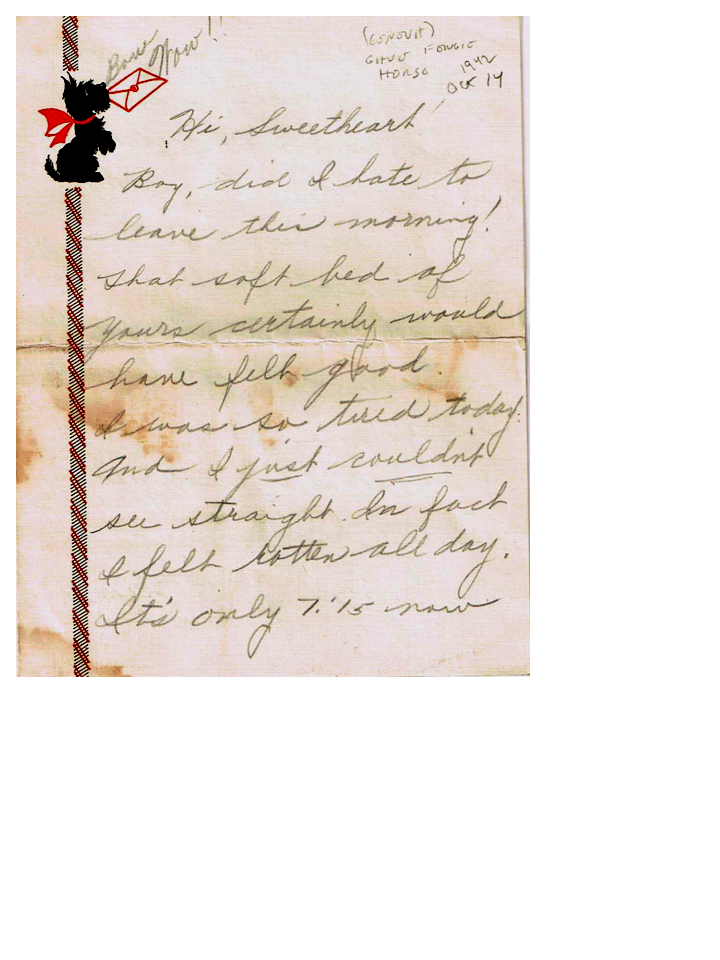 Bow
Wow!!
1942
Oct 14
Hi, Sweetheart
Boy, did I hate to
leave this morning!
That soft bed of
yours certainly would
have felt good.
I was so tired today.
And I just couldn't
see straight. In fact
I felt rotten all day.
It's only 7:15 now